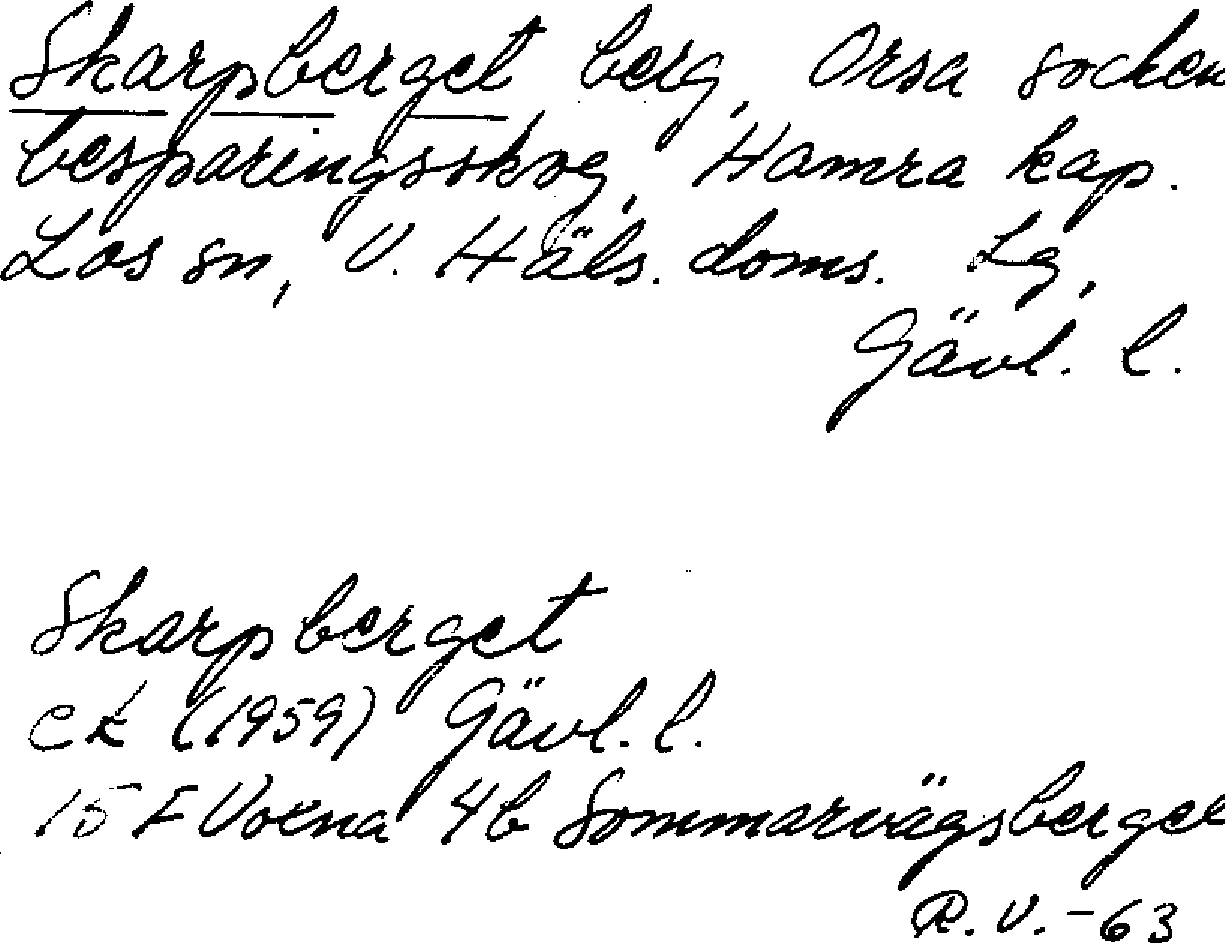 Skarpberget berg, Orsa socken
besparingsskog, Hamra kap.
Los sn, V. Häls. doms. Lg,
Gävl. l.
Skarpberget
ek (1959) Gävl. l.
15 F Voxna 4b Sommarvägsberget
R. V. -63